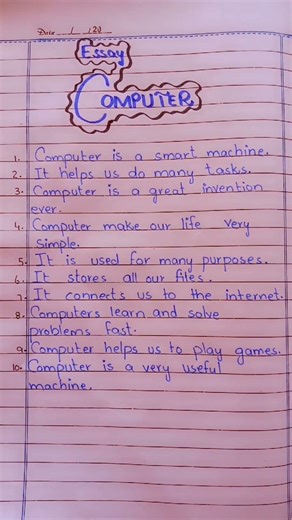 Date / /20
Essay
COMPUTER
1. Computer is a smart machine.
2. It helps us do many tasks.
3. Computer is a great invention
ever.
4. Computer make our life very
simple.
5. It is used for many purposes.
6. It stores all our files.
7. It connects us to the internet.
8. Computers learn and solve
problems fast.
9. Computer helps us to play games.
10. Computer is a very useful
machine.